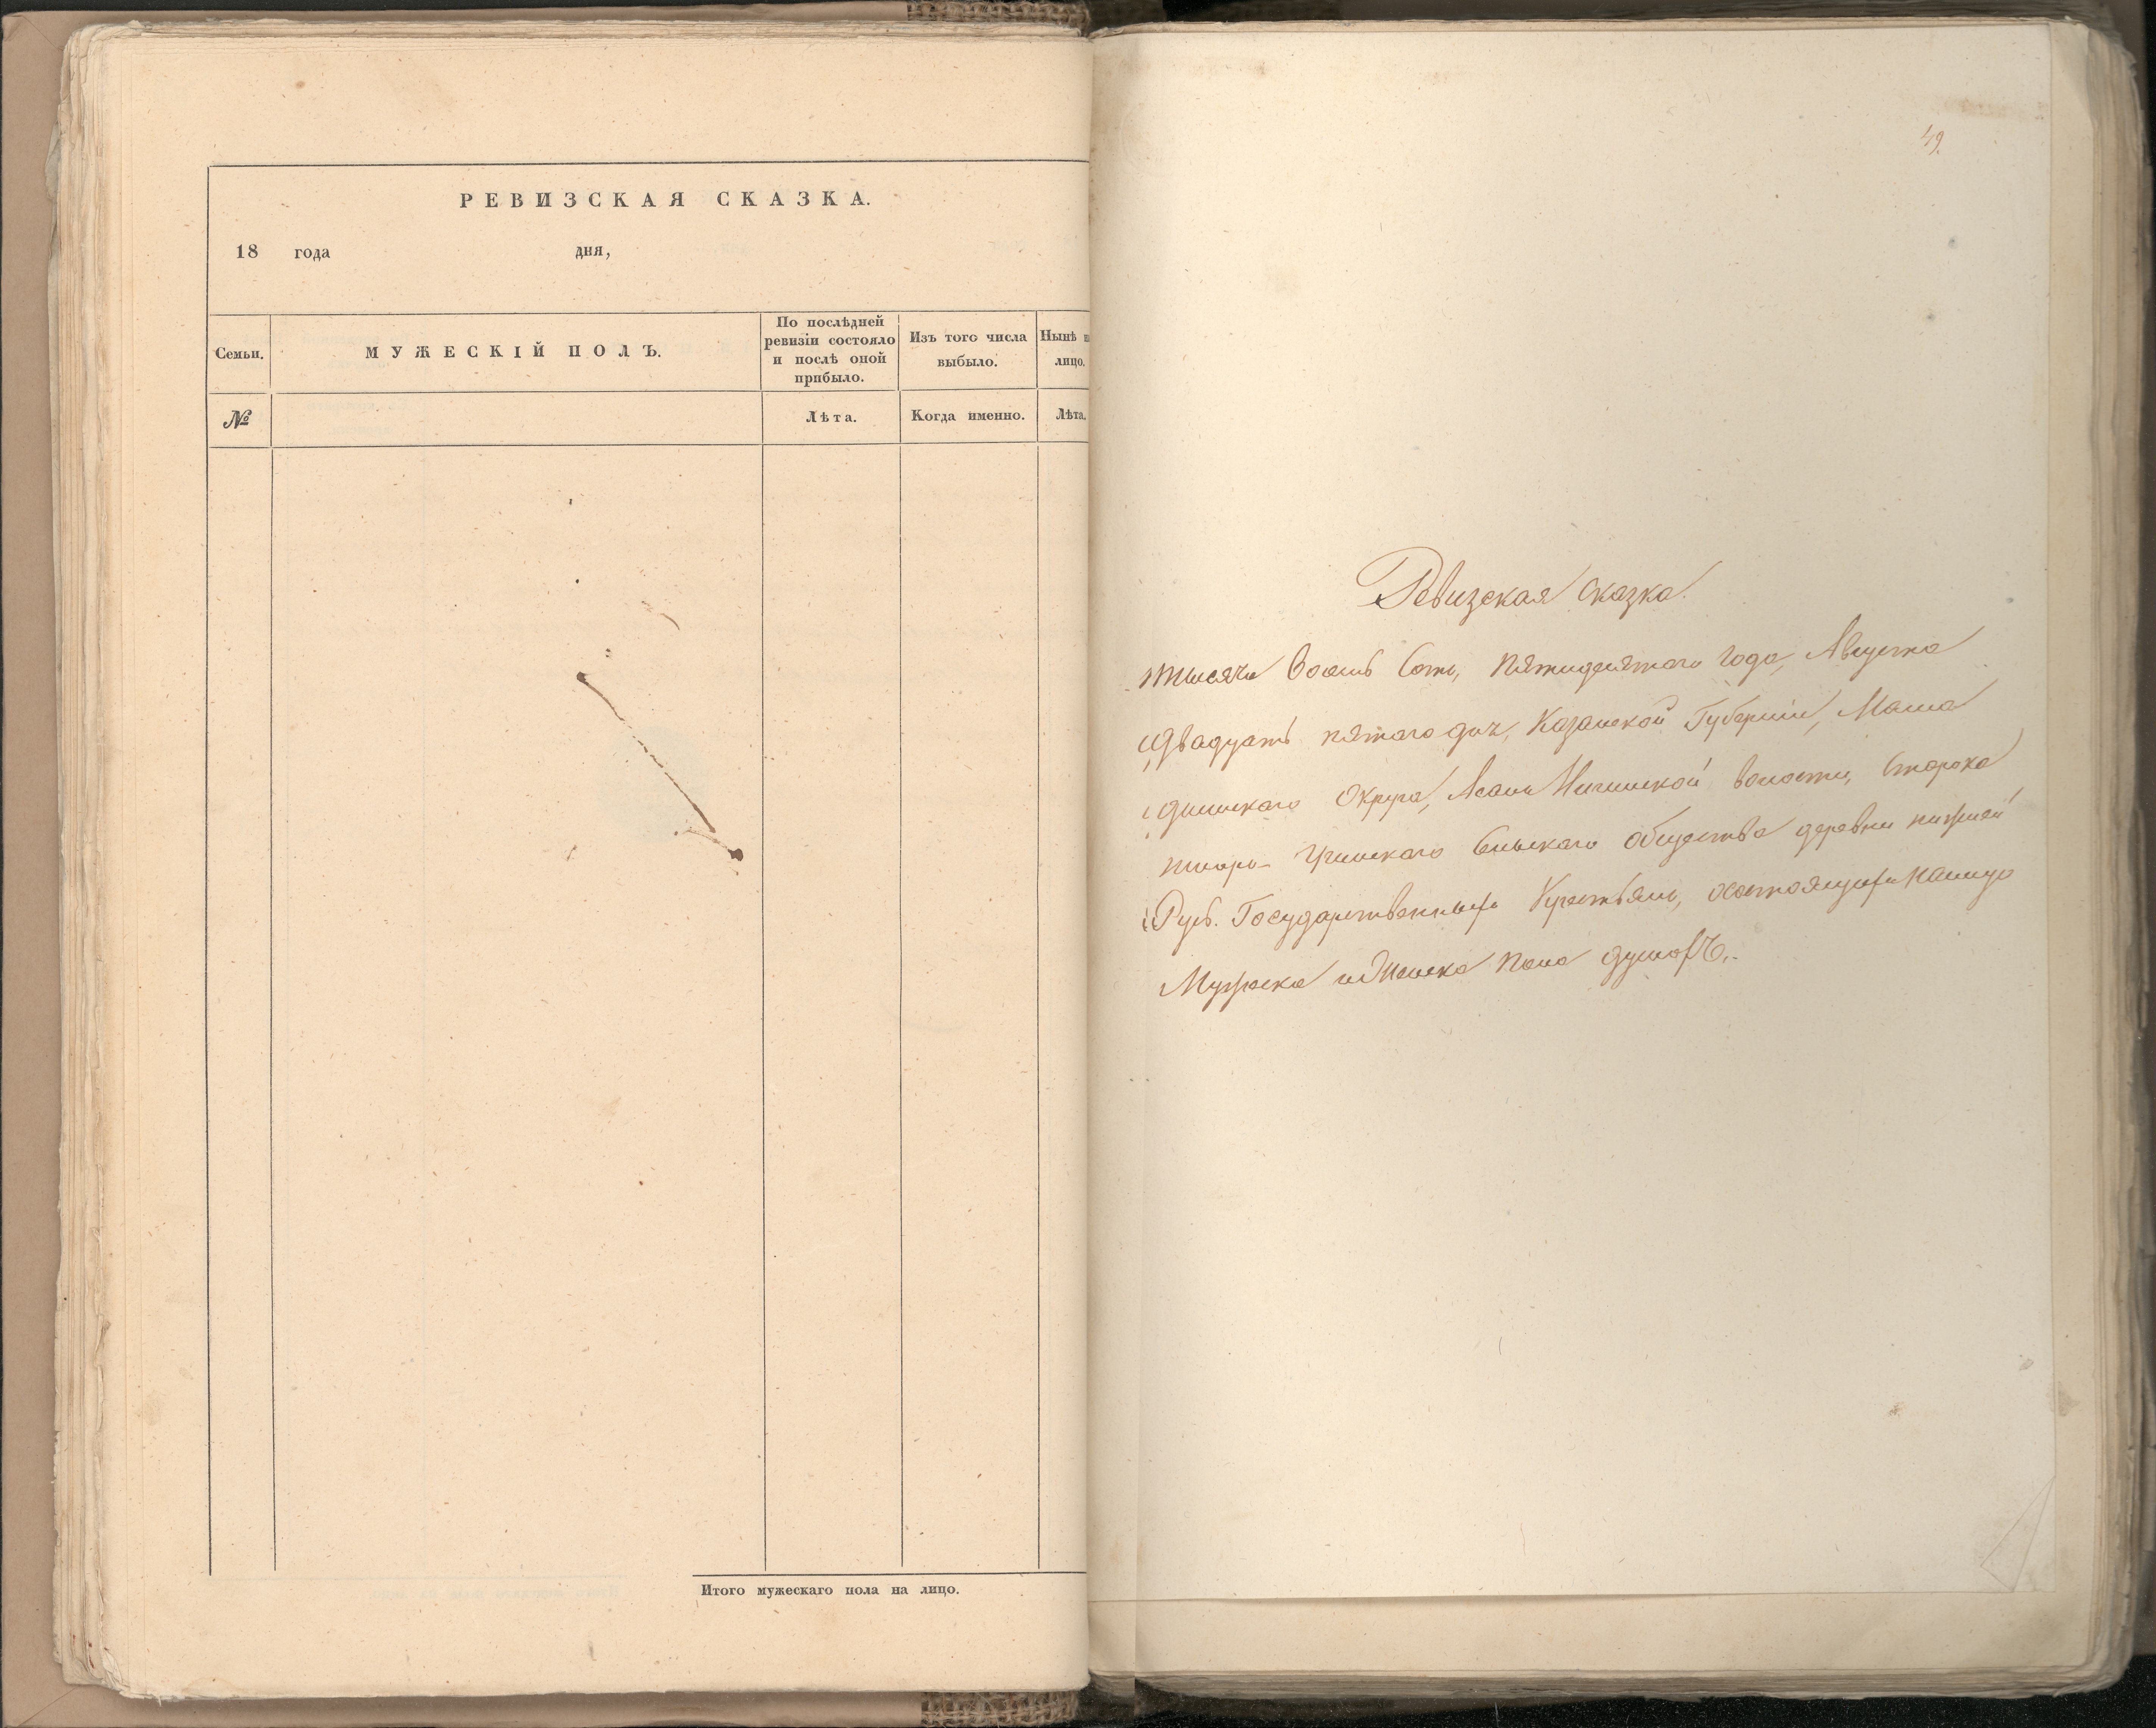 РЕВИЗСКАЯ СКАЗКА.
18 года дня,
Семьи.
МУЖЕСКІЙ ПОЛЪ.
По послѣдней
ревизіи состояло
и послѣ оной
прибыло.
Изъ того числа
выбыло.
Нынѣ н
лицо.
№
Лѣта.
Когда именно.
Лѣта.
Итого мужескаго пола на лицо.
49.
Ревизская сказка.
тысяча Восемь Сотъ, пятидесятаго года, Августа
двадцать пятаго дня, Казанской Губерніи, Мама
дышскаго Округа, волости, Старока
Учинскаго Сельскаго общества деревни нижней
Русь. Государственныхъ Крестьянъ, осостоящихъ налицо
Мужеска иЖенска пола душахъ.